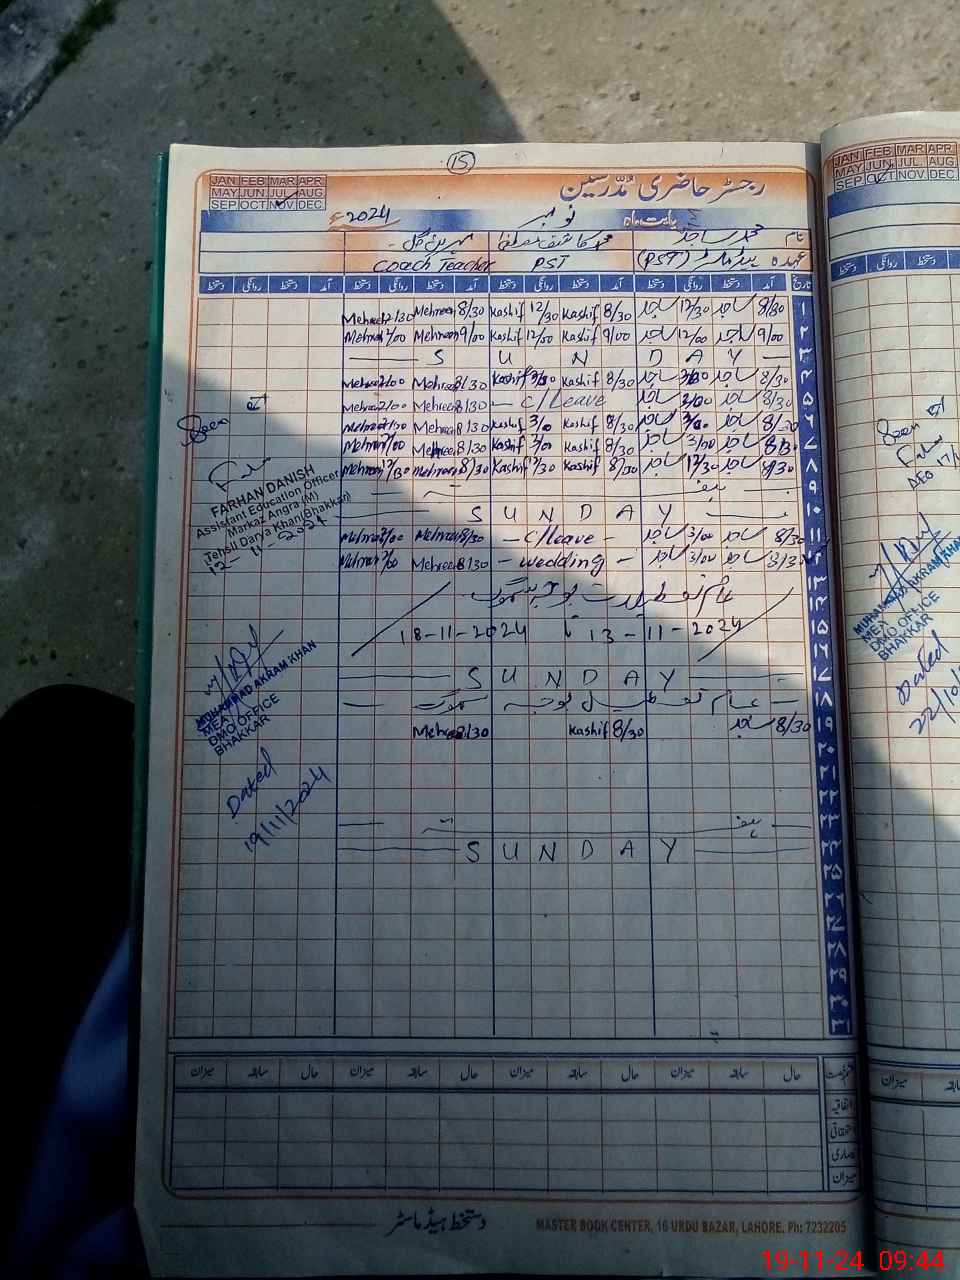 15
JAN FEB MAR APR
MAY JUN JUL AUG
SEP OCT NOV DEC
رجسٹر حاضری مُدّرسین
بابت ماہ نومبر 2024ء
نام محمد ساجد محمد کاشف مصطفیٰ
عہدہ (PST) PST Coach Teacher
تاریخ آمد دستخط روانگی دستخط آمد دستخط روانگی دستخط آمد دستخط روانگی دستخط آمد دستخط روانگی دستخط
۱ 8/30 ساجد 12/30 ساجد 8/30 Kashif 12/30 Kashif 8/30 Mehreen 12/30 Mehreen
۲ 9/00 ساجد 12/00 ساجد 9/00 Kashif 12/00 Kashif 9/00 Mehreen 2/00 Mehreen
۳ SUNDAY
۴ 8/30 ساجد ساجد 8/30 Kashif Kashif 8/30 Mehreen 2/00 Mehreen
۵ 8/30 ساجد 2/00 ساجد C/Leave 8/30 Mehreen 2/00 Mehreen
۶ 8/30 ساجد ساجد 8/30 Kashif Kashif 8/30 Mehreen Mehreen
۷ 8/30 ساجد 3/00 ساجد 8/30 Kashif Kashif 8/30 Mehreen Mehreen
۸ 8/30 ساجد 12/30 ساجد 8/30 Kashif Kashif 8/30 Mehreen Mehreen
۹
۱۰ SUNDAY
۱۱ 8/30 ساجد 3/00 ساجد C/Leave 8/30 Mehreen Mehreen
۱۲ ساجد 3/00 ساجد wedding 8/30 Mehreen Mehreen
۱۳
۱۴
۱۵ 13-11-2024 تا 18-11-2024
۱۶
۱۷ SUNDAY
۱۸ عام تعطیل بوجہ سموگ
۱۹ 8/30 ساجد 8/30 Kashif 8/30 Mehreen
۲۰
۲۱
۲۲
۲۳
۲۴ SUNDAY
۲۵
۲۶
۲۷
۲۸
۲۹
۳۰
۳۱
Seen
FARHAN DANISH
Assistant Education Officer
Markaz Angra (M)
Tehsil Darya Khan (Bhakkar)
12-11-2024
MUHAMMAD AKRAM KHAN
MEA
DMO OFFICE
BHAKKAR
Dated
19/11/2024
حال سابقہ میزان حال سابقہ میزان حال سابقہ میزان حال سابقہ میزان
اتفاقیہ
میزان
دستخط ہیڈ ماسٹر
MASTER BOOK CENTER, 16 URDU BAZAR, LAHORE. Ph: 7232205
JAN FEB MAR APR
MAY JUN JUL AUG
SEP OCT NOV DEC
دستخط روانگی
Seen
MUHAMMAD AKRAM KHAN
MEA
DMO OFFICE
BHAKKAR
Dated
میزان
19-11-24 09:44